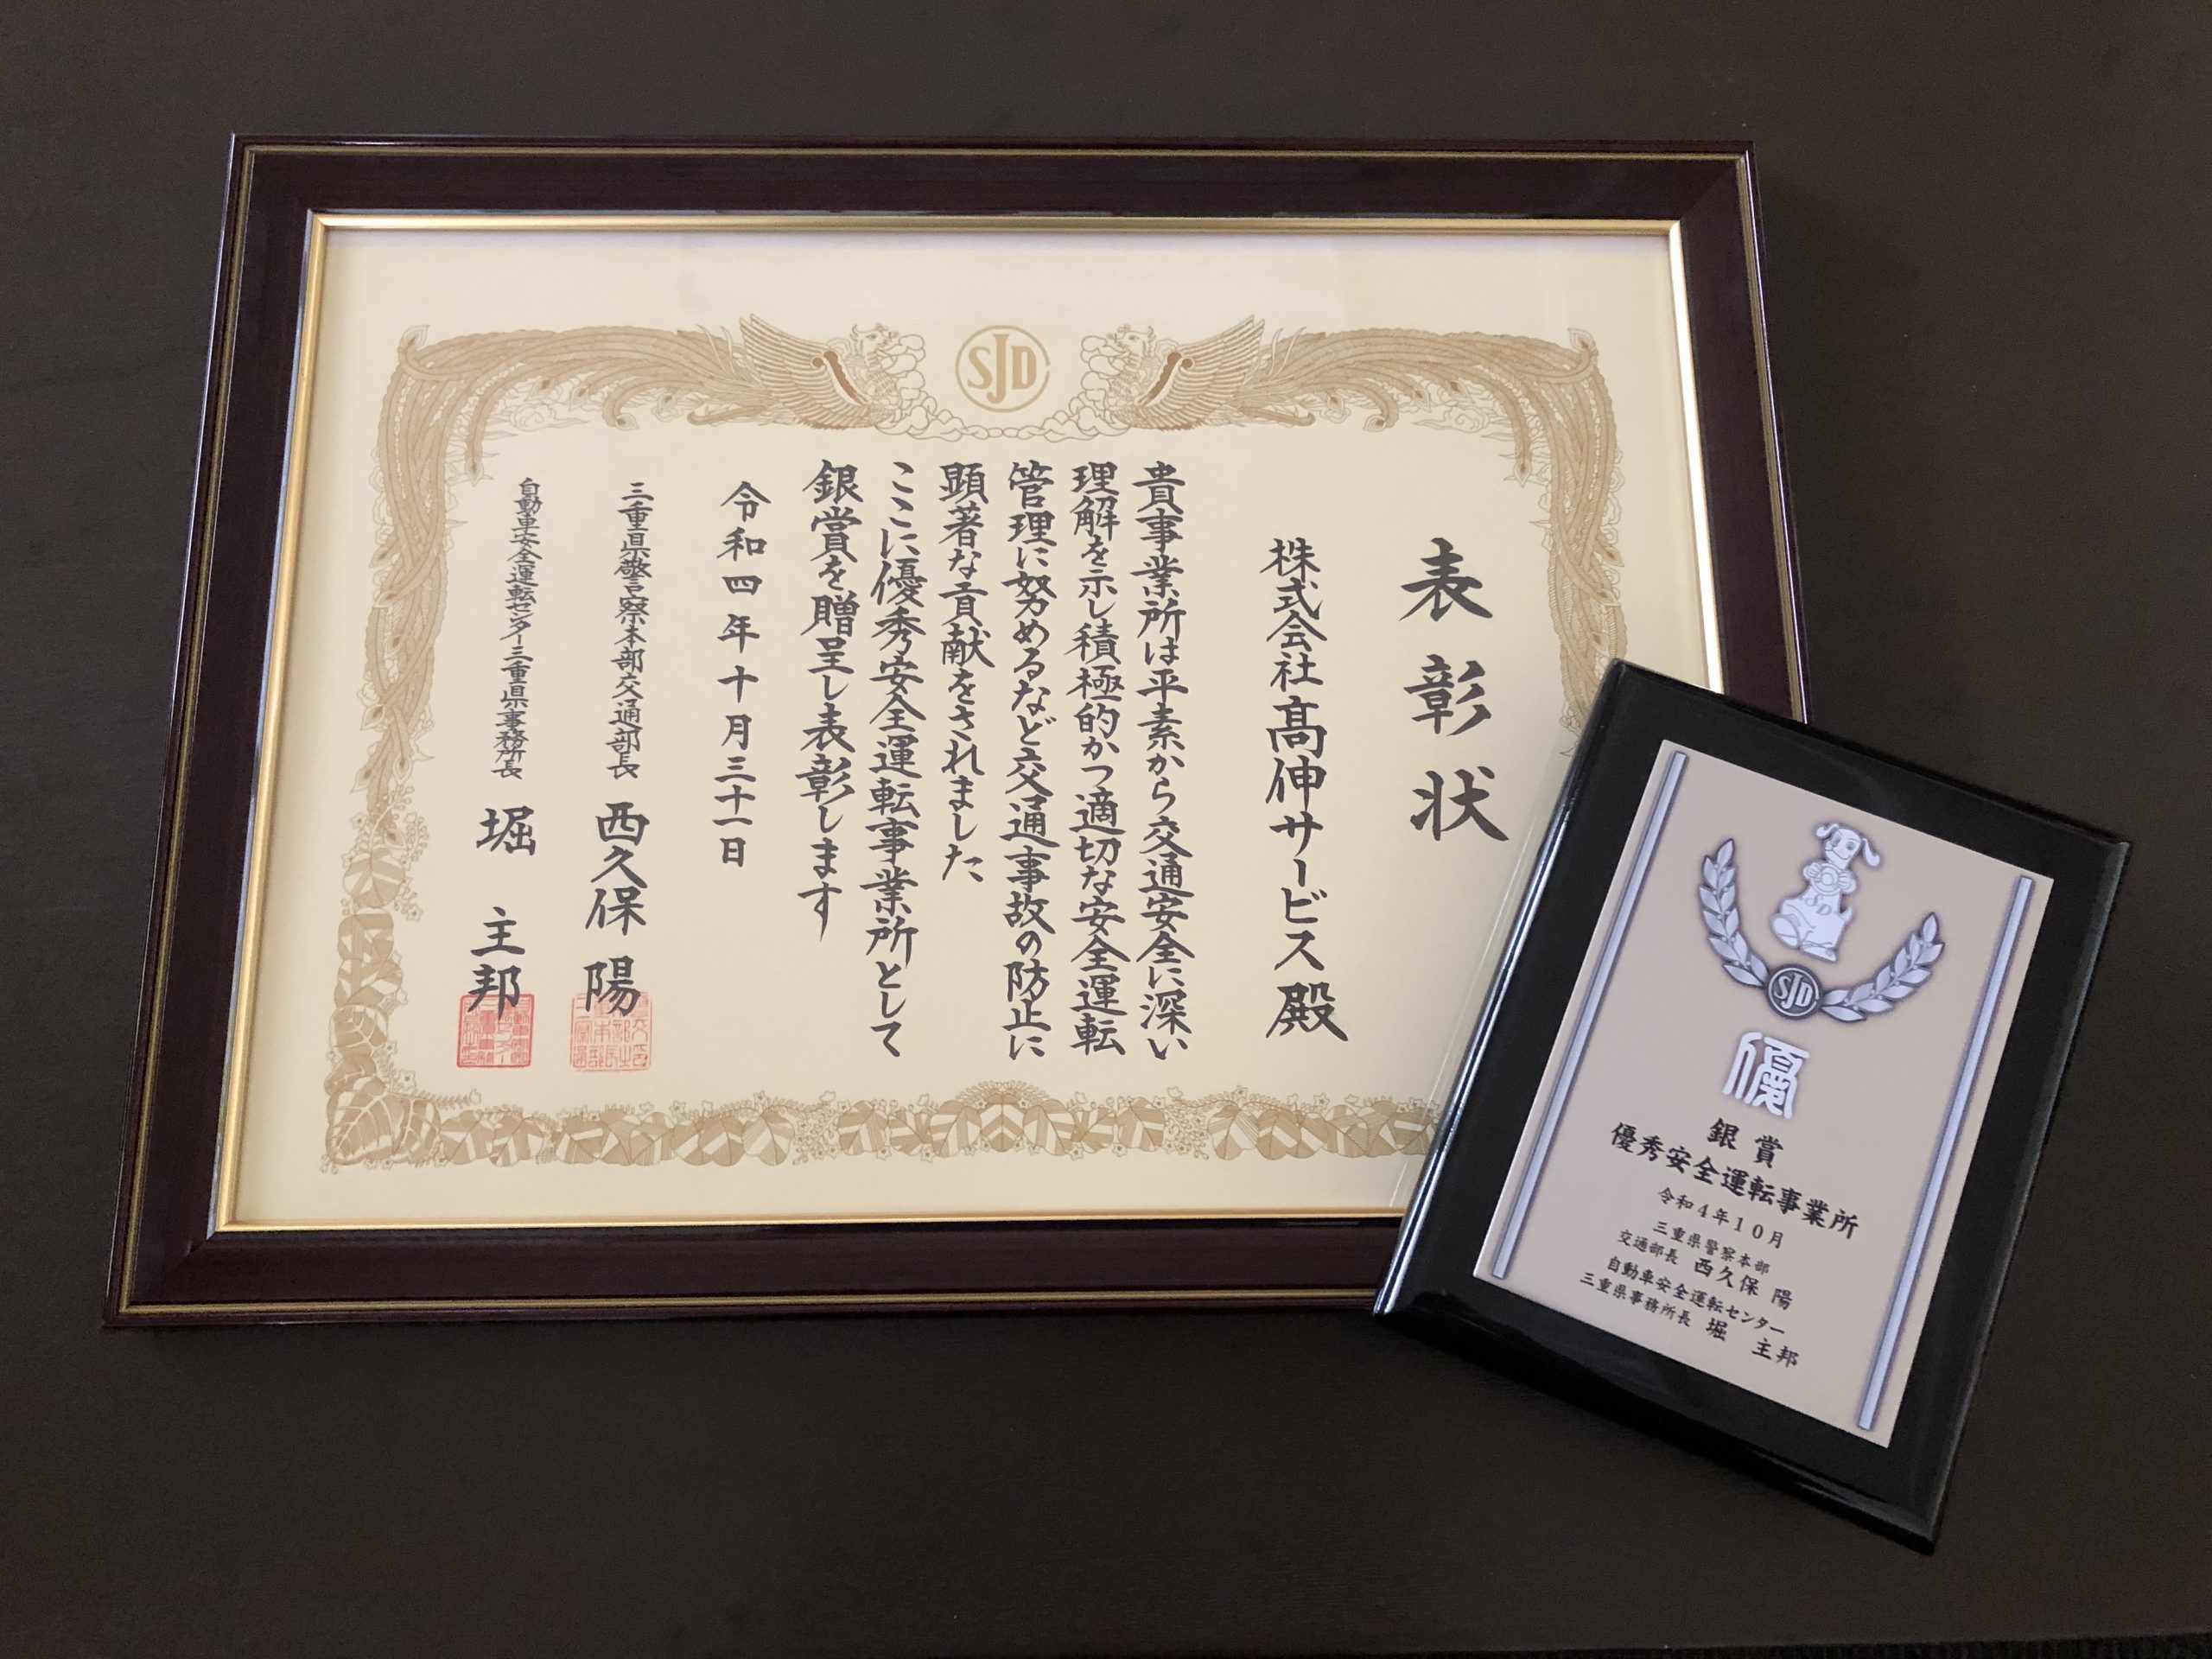 SJD
表彰状
株式会社髙伸サービス殿
貴事業所は平素から交通安全に深い
理解を示し積極的かつ適切な安全運転
管理に努めるなど交通事故の防止に
顕著な貢献をされました
ここに優秀安全運転事業所として
銀賞を贈呈し表彰します
令和四年十月三十一日
三重県警察本部交通部長 西久保 陽
自動車安全運転センター三重県事務所長 堀 主邦
SJD
優
銀賞
優秀安全運転事業所
令和4年10月
三重県警察本部
交通部長 西久保 陽
自動車安全運転センター
三重県事務所長 堀 主邦